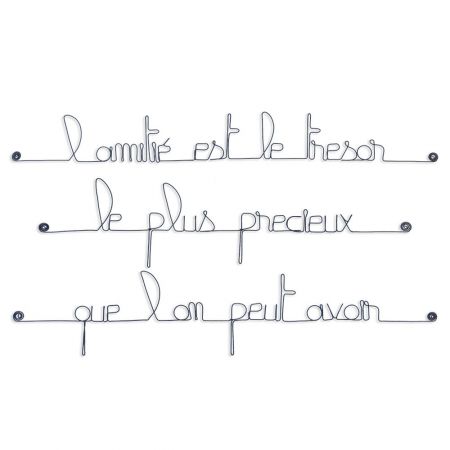 l'amitié est le tresor
le plus precieux
que l'on peut avoir